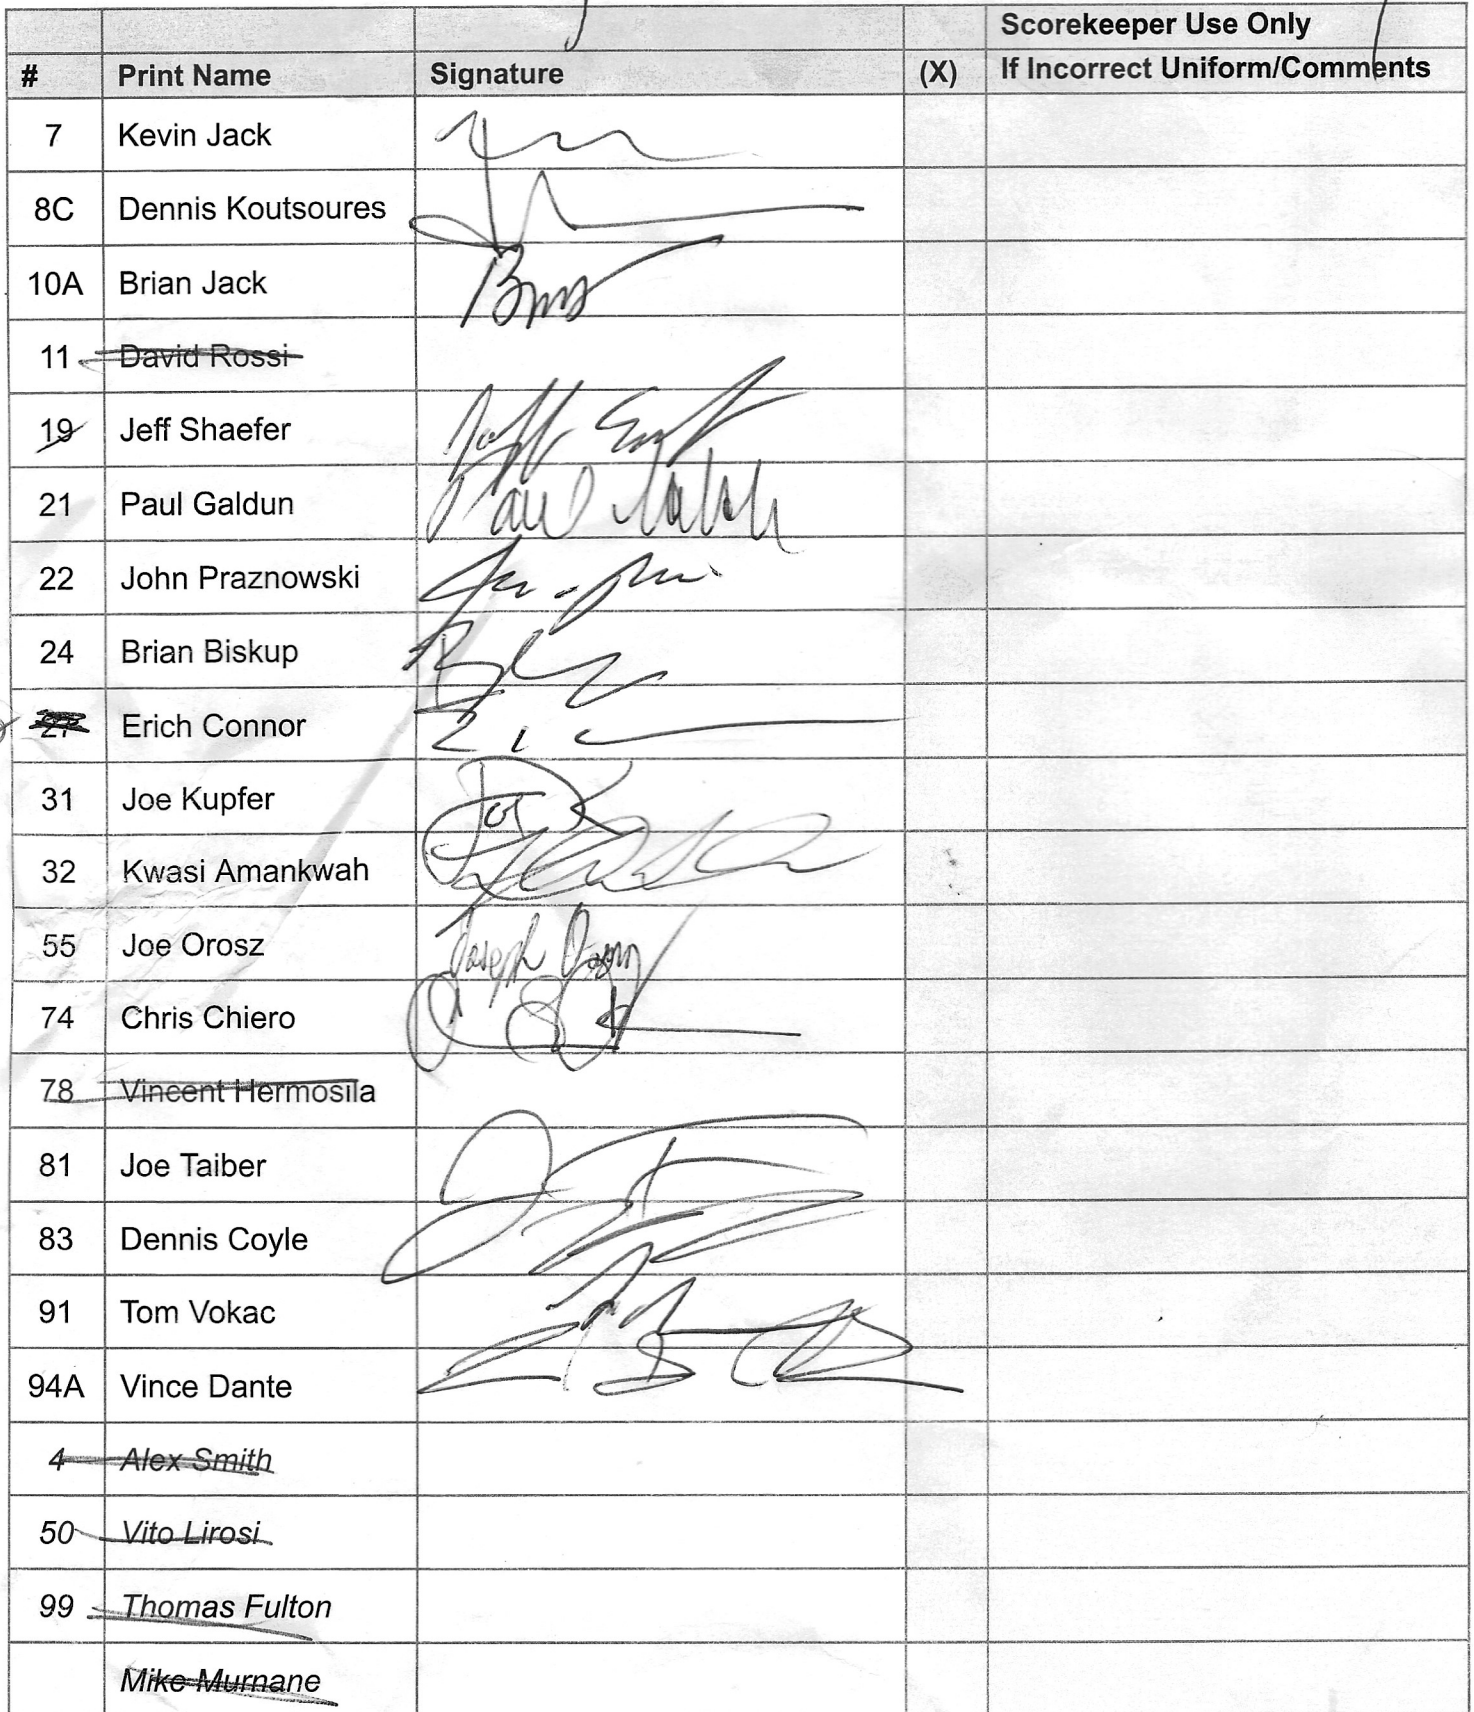 Scorekeeper Use Only
# Print Name Signature (X) If Incorrect Uniform/Comments
7 Kevin Jack
8C Dennis Koutsoures
10A Brian Jack
11 David Rossi
19 Jeff Shaefer
21 Paul Galdun
22 John Praznowski
24 Brian Biskup
27 Erich Connor
31 Joe Kupfer
32 Kwasi Amankwah
55 Joe Orosz Joseph
74 Chris Chiero
78 Vincent Hermosila
81 Joe Taiber
83 Dennis Coyle
91 Tom Vokac
94A Vince Dante
4 Alex Smith
50 Vito Lirosi
99 Thomas Fulton
Mike Murnane